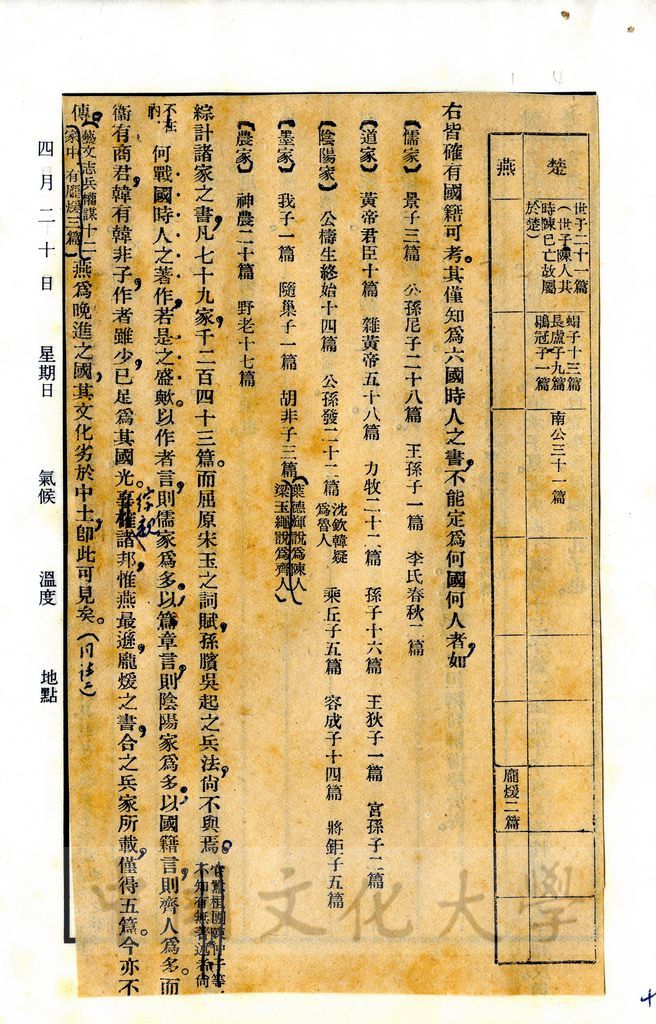 楚
世子二十一篇
（世子陳人其
時陳已亡故屬
於楚）
蜎子十三篇
長盧子九篇
鶡冠子一篇
南公三十一篇
燕
龐煖二篇
右皆確有國籍可考。其僅知為六國時人之書，不能定為何國何人者，如
【儒家】　景子三篇　公孫尼子二十八篇　王孫子一篇　李氏春秋二篇
【道家】　黃帝君臣十篇　雜黃帝五十八篇　力牧二十二篇　孫子十六篇　王狄子一篇　宮孫子二篇
【陰陽家】　公檮生終始十四篇　公孫發二十二篇　沈欽韓疑為魯人　乘丘子五篇　容成子十四篇　將鉅子五篇
【墨家】　我子一篇　隨巢子一篇　胡非子三篇（葉德輝說為陳人梁玉繩說為齊人）
【農家】　神農二十篇　野老十七篇
綜計諸家之書，凡七十九家，千二百四十三篇。而屈原宋玉之詞賦，孫臏吳起之兵法，尚不與焉。
不在
內
何戰國時人之著作，若是之盛歟。以作者言，則儒家為多，以篇章言，則陰陽家為多，以國籍言，則齊人為多。而
衞有商君，韓有韓非子，作者雖少，已足為其國光。
綜觀
諸邦，惟燕最遜，龐煖之書，合之兵家所載，僅得五篇。今亦不
傳。（藝文志兵權謀十三家中有龐煖三篇）燕為晚進之國，其文化劣於中土，卽此可見矣。
四月二十日　星期日　氣候　溫度　地點
中國文化大學